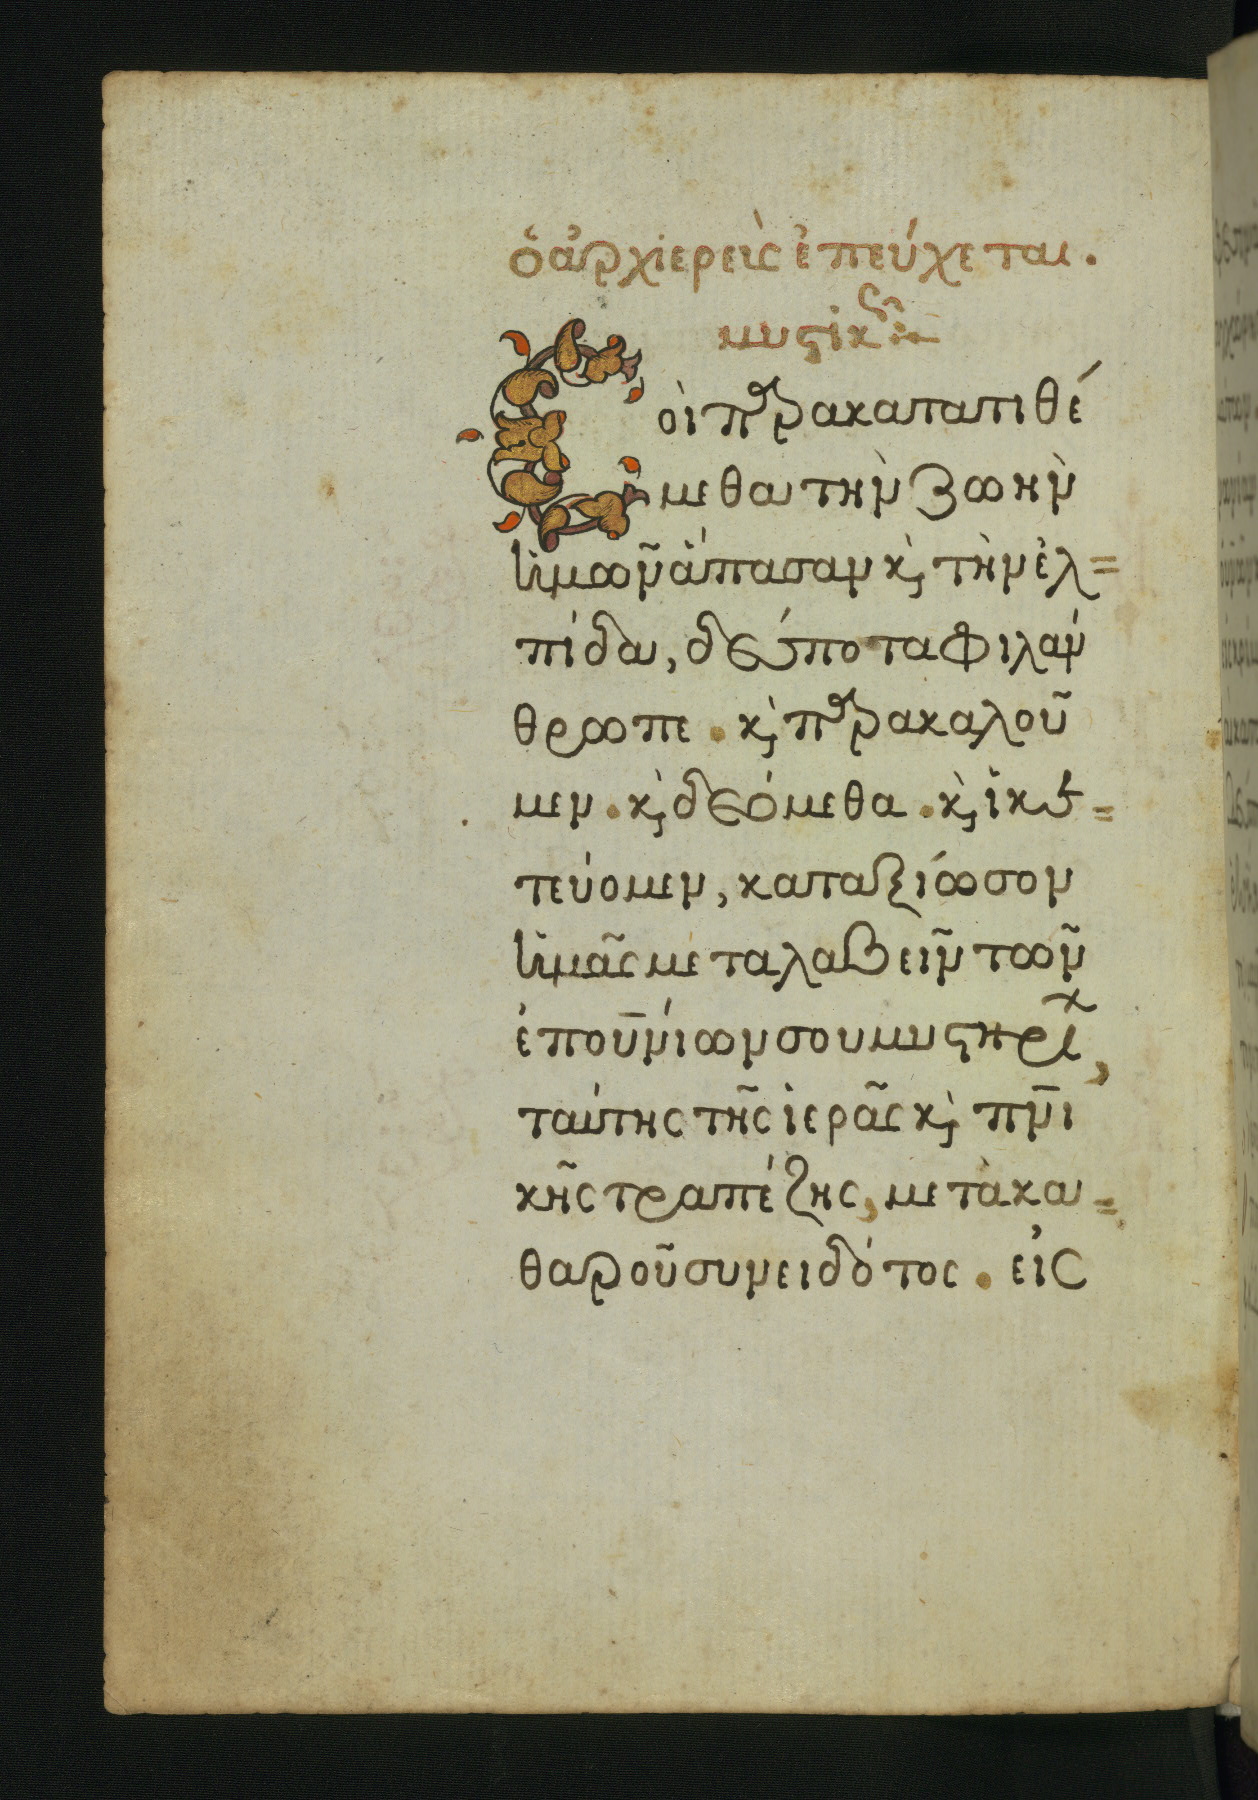 ὁ ἀρχιερεὺς ἐπεύχεται.
μυστικῶς
Σοὶ παρακατατιθέ
μεθα τὴν ζωὴν
ἡμῶν ἅπασαν κ̀ τὴν ἐλ=
πίδα, δέσποτα φιλάν
θρωπε. κ̀ παρακαλοῦ
μεν. κ̀ δεόμεθα. κ̀ ἱκε=
τεύομεν, καταξίωσον
ἡμᾶς μεταλαβεῖν τῶν
ἐπουνίων σου μυστηρί
ταύτης τῆς ἱερᾶς κ̀ πνι
κῆς τραπέζης, μετὰ κα=
θαροῦ συνειδότος. εἰς